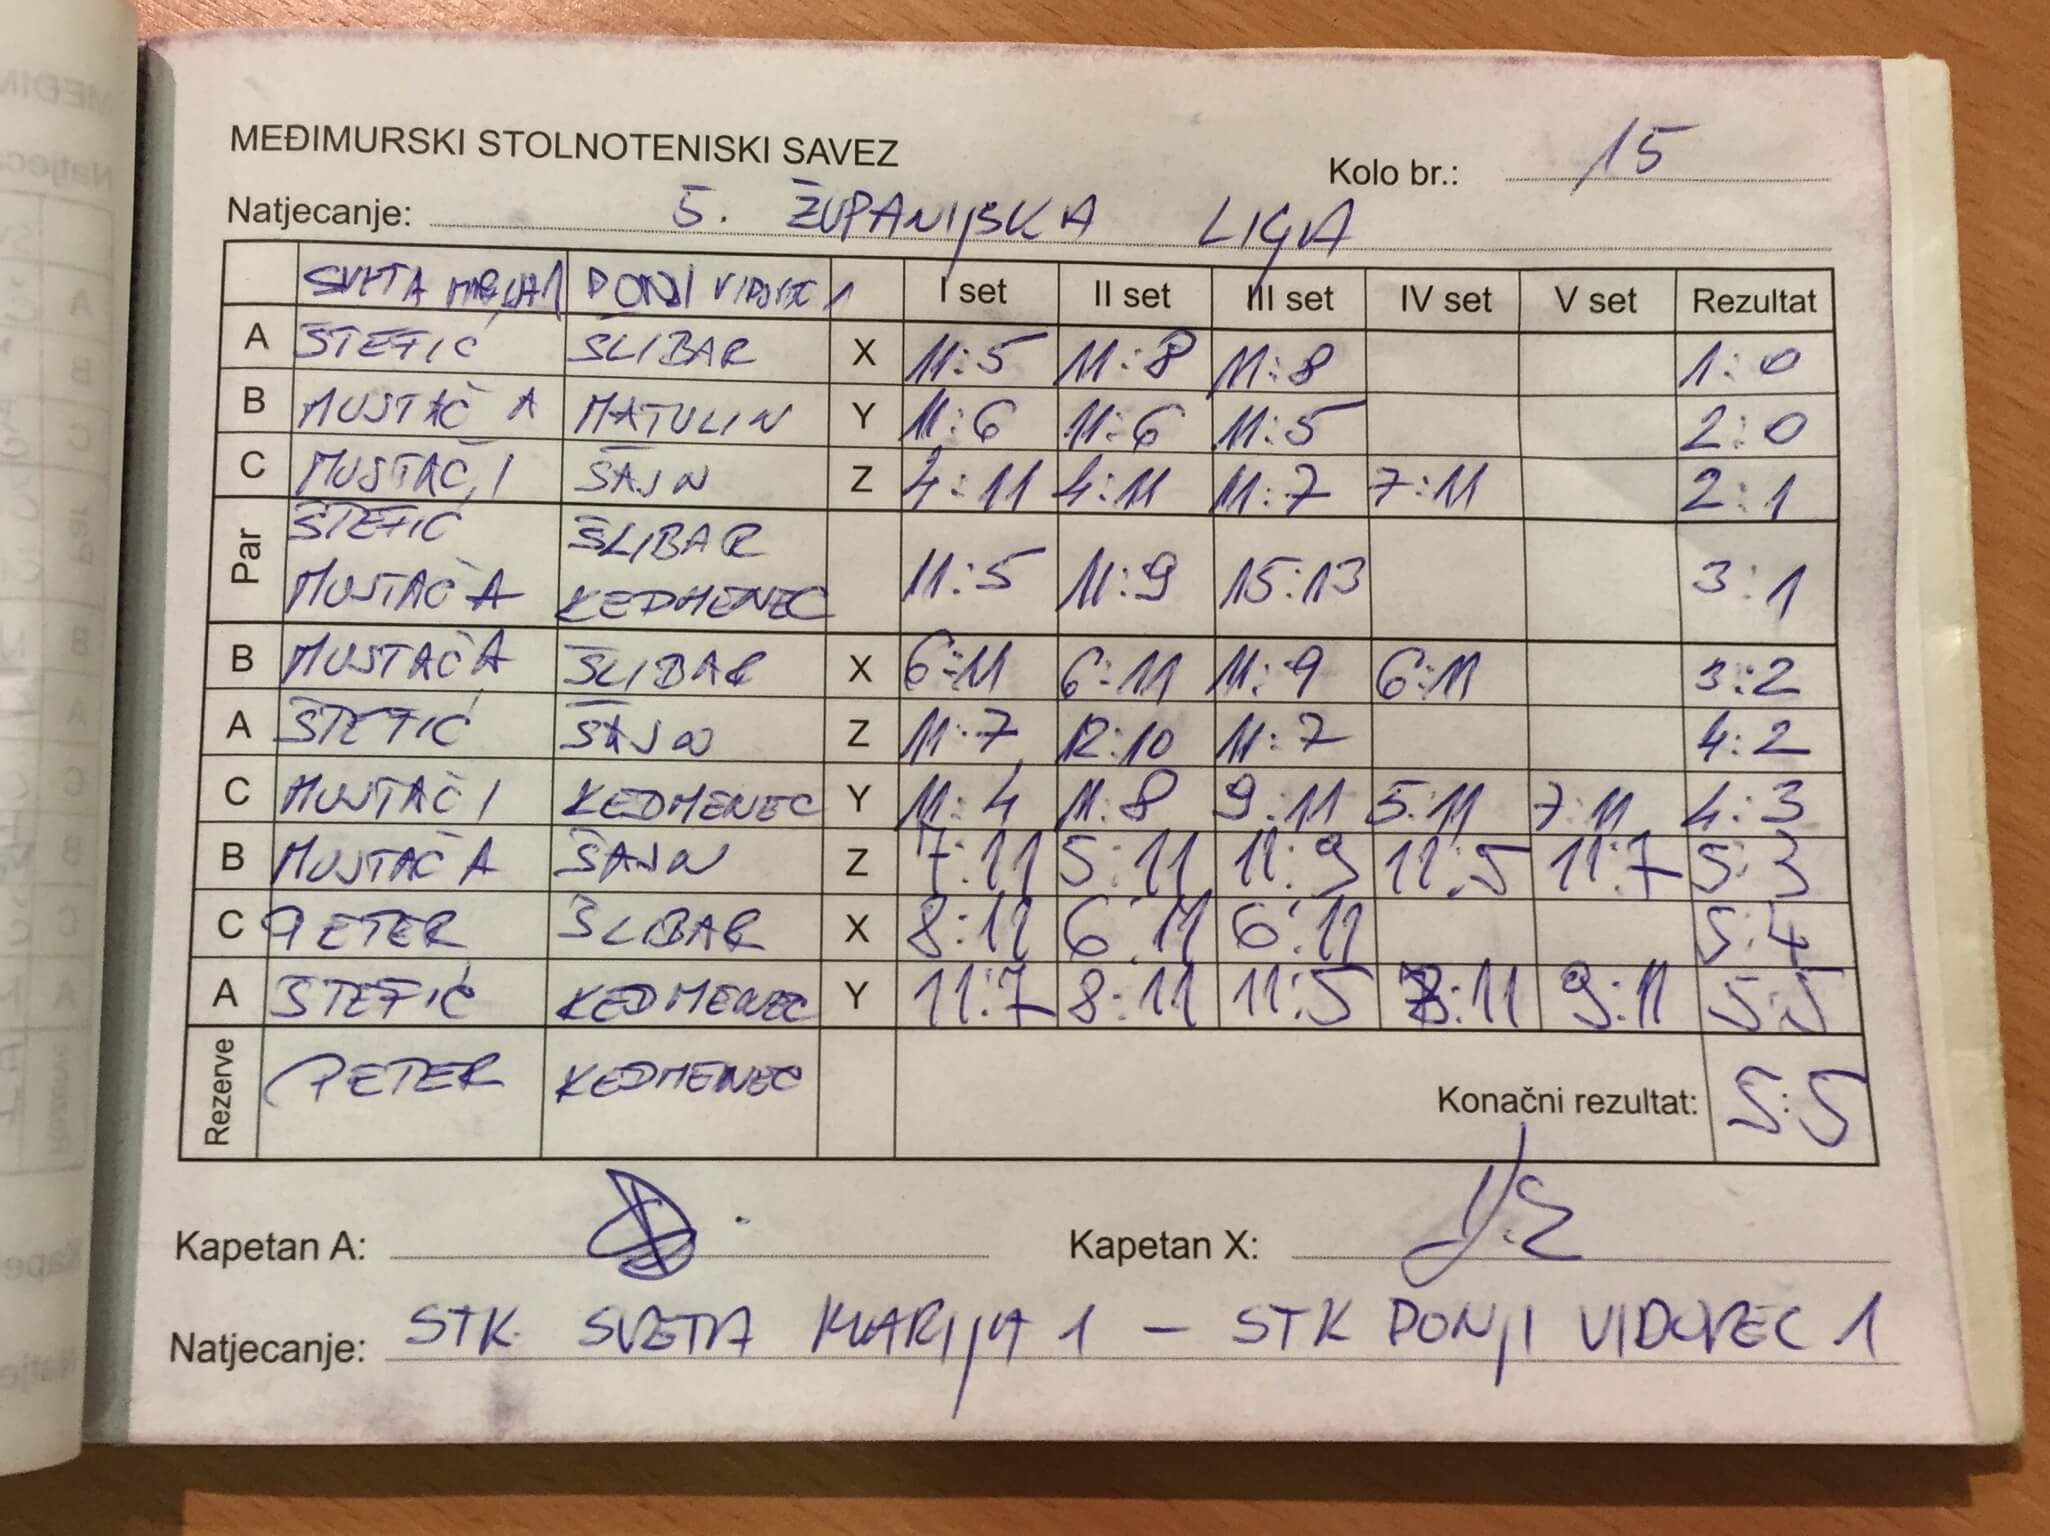 MEĐIMURSKI STOLNOTENISKI SAVEZ
Kolo br.: 15
Natjecanje: 5. ŽUPANIJSKA LIGA
SVETA MARIJA 1 DONJI VIDOVEC 1 I set II set III set IV set V set Rezultat
A ŠTEFIĆ ŠLIBAR X 11:5 11:8 11:8 1:0
B MUSTAČ A MATULIN Y 11:6 11:6 11:5 2:0
C MUSTAČ I ŠAJN Z 4:11 4:11 11:7 7:11 2:1
Par ŠTEFIĆ ŠLIBAR
MUSTAČ A KEDMENEC 11:5 11:9 15:13 3:1
B MUSTAČ A ŠLIBAR X 6:11 6:11 11:9 6:11 3:2
A ŠTEFIĆ ŠAJN Z 11:7 12:10 11:7 4:2
C MUSTAČ I KEDMENEC Y 11:4 11:8 9:11 5:11 7:11 4:3
B MUSTAČ A ŠAJN Z 7:11 5:11 11:9 11:5 11:7 5:3
C PETER ŠLIBAR X 8:11 6:11 6:11 5:4
A ŠTEFIĆ KEDMENEC Y 11:7 8:11 11:5 8:11 9:11 5:5
Rezerve PETER KEDMENEC Konačni rezultat: 5:5
Kapetan A: Kapetan X:
Natjecanje: STK SVETA MARIJA 1 - STK DONJI VIDOVEC 1